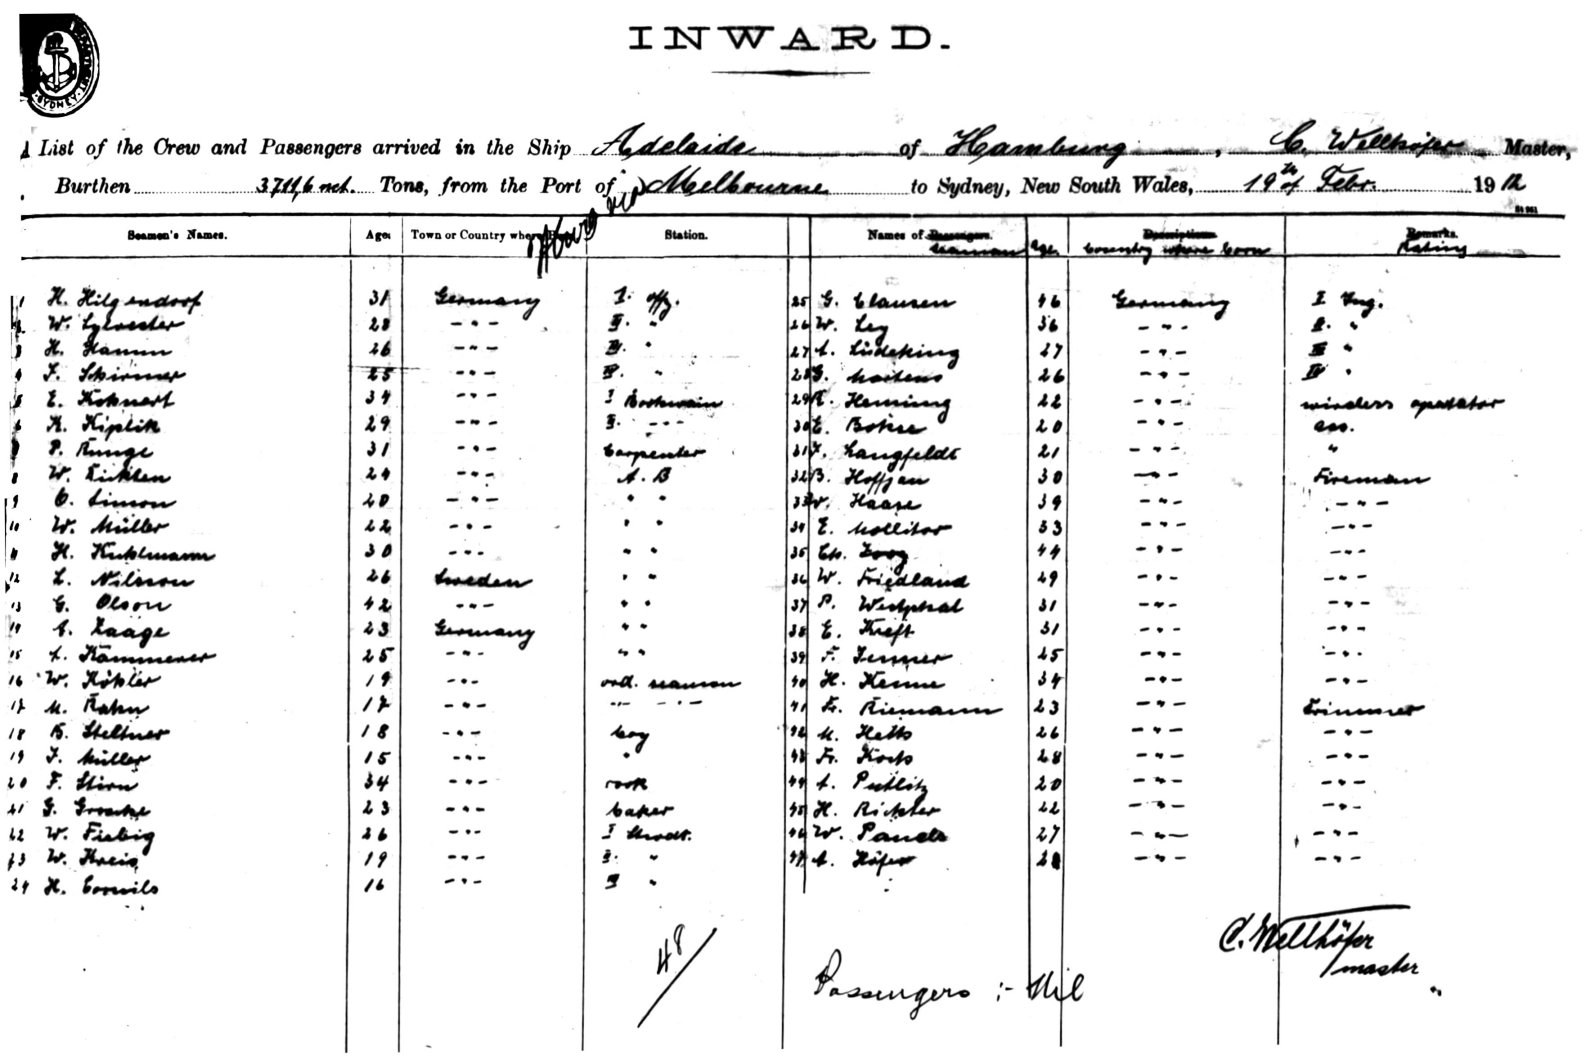 SYDNEY
INWARD.
List of the Crew and Passengers arrived in the Ship Adelaide of Hamburg, C. Wellhöfer Master,
Burthen 3711,6 net. Tons, from the Port of via Melbourne to Sydney, New South Wales, 19th of Febr. 1912
Seamen's Names. Age. Town or Country where Station. Names of Passengers. seaman Age. Descriptions. Country where born Remarks. Rating
1 H. Hilgendorf 31 Germany I. offz. 25 G. Clausen 46 Germany I Ing.
2 W. Sylvester 28 -"- II. " 26 W. Ley 36 -"- II. "
3 H. Hamm 26 -"- III. " 27 A. Lüdeking 27 -"- III "
4 F. Schirmer 25 -"- IV. " 28 G. Martens 26 -"- IV "
5 E. Kohnert 34 -"- I Boatswain 29 K. Heming 22 -"- wireless operator
6 K. Kiplik 29 -"- II. -"- 30 E. Bohse 20 -"- ass.
7 P. Runge 31 -"- Carpenter 31 F. Langfeldt 21 -"- "
8 W. Lichten 24 -"- A. B 32 B. Hoffjan 30 -"- Fireman
9 O. Simon 20 -"- " " 33 W. Haase 39 -"- -"-
10 W. Müller 22 -"- " " 34 E. Mollitor 33 -"- -"-
11 H. Kuhlmann 30 -"- " " 35 Ch. Zoog 44 -"- -"-
12 L. Nilsson 26 Sweden " " 36 W. Friedland 29 -"- -"-
13 G. Olson 42 -"- " " 37 P. Westphal 31 -"- -"-
14 E. Zaage 23 Germany " " 38 E. Kreft 31 -"- -"-
15 A. Kämmerer 25 -"- " " 39 F. Jenner 25 -"- -"-
16 W. Köhler 19 -"- ord. seaman 40 H. Henne 34 -"- -"-
17 M. Rahn 17 -"- -"- -"- 41 Fr. Riemann 23 -"- Trimmer
18 B. Steltner 18 -"- boy 42 M. Hetts 26 -"- -"-
19 J. Müller 15 -"- " 43 Fr. Koch 28 -"- -"-
20 F. Stirn 34 -"- cook 44 A. Putlitz 20 -"- -"-
21 G. Groecke 23 -"- baker 45 H. Richter 22 -"- -"-
22 W. Fiebig 26 -"- I Stwdt. 46 W. Pandr 27 -"- -"-
23 W. Kreis 19 -"- II. " 47 A. Höfer 28 -"- -"-
24 H. Cornils 16 -"- III "
48
C. Wellhöfer
master
Passengers :- Nil